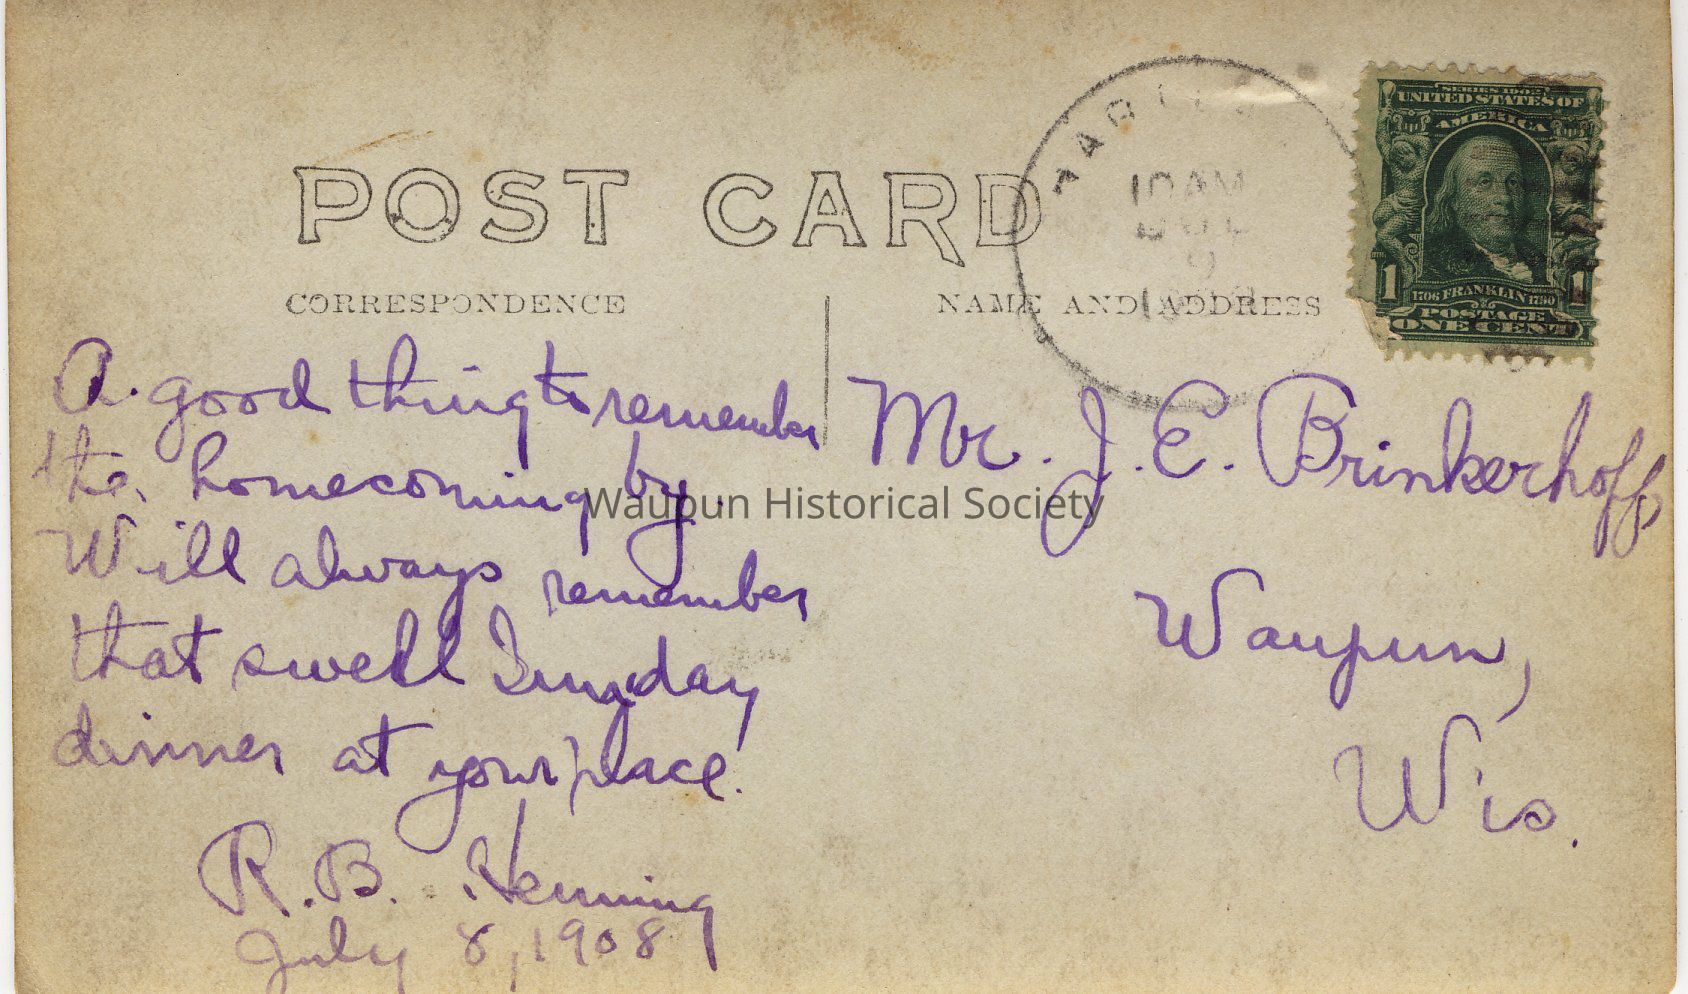 POST CARD
CORRESPONDENCE
NAME AND ADDRESS
10 AM
JUL
9
SERIES 1902
UNITED STATES OF
AMERICA
1
1706 FRANKLIN 1790
1
POSTAGE
ONE CENT
A good thing to remember
the homecoming by.
Will always remember
that swell Sunday
dinner at your place.
R.B. Henning
July 8, 1908
Mr. J. E. Brinkerhoff,
Waupun,
Wis.
Waupun Historical Society